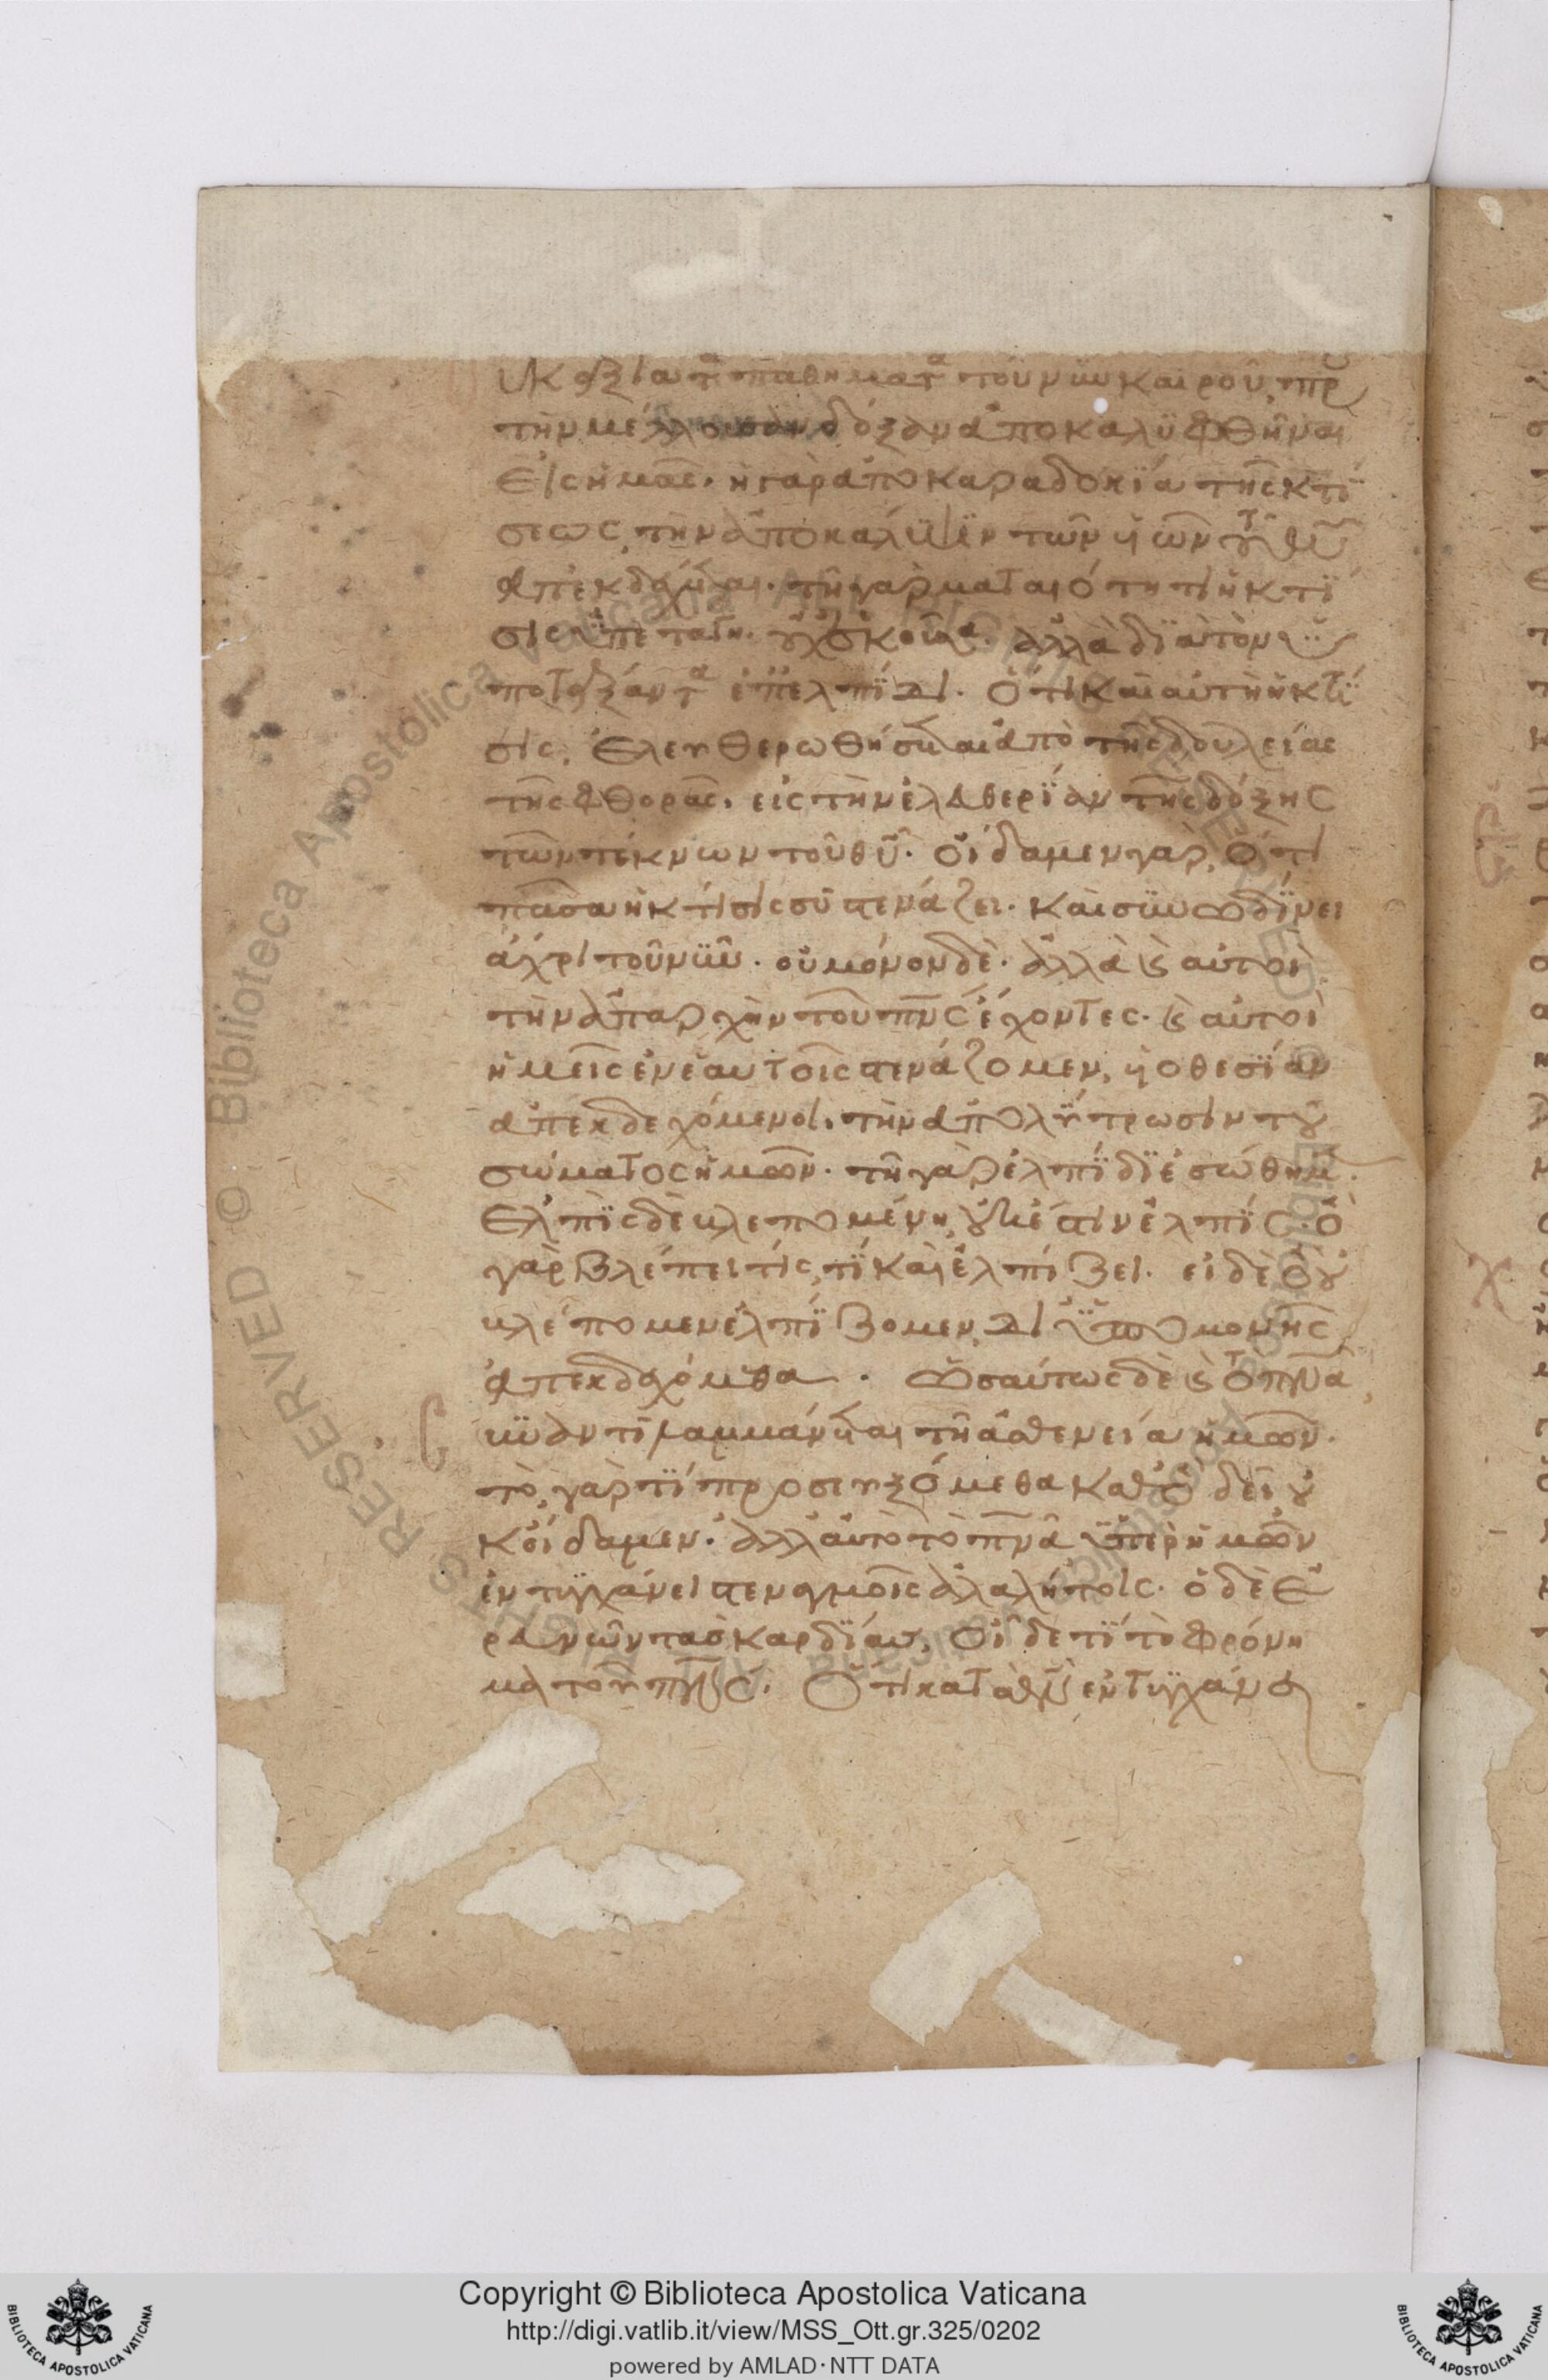 υκ αξια τα παθηματα του νυν καιρου, πρ
την μέλλουσαν δόξαν ἀποκαλϋφθῆναι
εἰς ἡμᾶς· ἡ γὰρ ἀποκαραδοκϊα τῆς κτί
σεως, τὴν ἀποκάλϋψϊν τῶν ϋιῶν τοῦ θῦ
ἀπεκδέχεται· τῆ γὰρ ματαιότητι ἡ κτί
σις ὑπετάγη· οὐχ ἑκοῦσα· ἀλλὰ δϊὰ τὸν ὑ
ποτάξαντα ἐπελπϊδι· ὅτι καὶ αὐτὴ ἡ κτί
σις, ἐλευθερωθήσεται ἀπὸ τῆς δουλείας
τῆς φθορᾶς· εἰς τὴν ἐλευθερϊαν τῆς δόξης
τῶν τέκνων τοῦ θῦ· οἴδαμεν γὰρ, ὅτι
πᾶσα ἡ κτίσις συστενάζει· καὶ συνωδϊνει
ἄχρι τοῦ νῦν· οὐ μόνον δὲ· ἀλλὰ ϗ αὐτοὶ
τὴν ἀπαρχὴν τοῦ πνς ἔχοντες· ϗ αὐτοὶ
ἡμεῖς ἐν ἑαυτοῖς στενάζομεν, υἱοθεσϊαν
ἀπεκδεχόμενοι, τὴν ἀπολύτρωσιν τοῦ
σώματος ἡμῶν· τῆ γὰρ ἐλπϊδϊ ἐσώθημεν·
ἐλπϊς δὲ βλεπομένη, οὐκ ἔστιν ἐλπϊς· ὃ
γὰρ βλέπει τίς, τί καὶ ἐλπίζει· εἰ δὲ ὃ οὐ
βλέπομεν ἐλπϊζομεν, δι ὑπομονῆς
ἀπεκδεχόμεθα· ὡσαύτως δὲ ϗ τὸ πνα
συναντιλαμβάνεται τῆ ἀσθενεία ἡμῶν·
τὸ, γὰρ τί προσευξόμεθα καθὸ δεῖ οὐ
κ οἴδαμεν· ἀλλ αὐτὸ τὸ πνα ὑπὲρ ἡμῶν
ἐντυγχάνει στεναγμοῖς ἀλαλήτοις· ὁ δὲ ἐ
ρευνῶν τὰς καρδϊας, οἶδε τϊ τὸ φρόνη
μα τοῦ πνς· ὅτι κατὰ θν ἐντυγχάνει
Copyright © Biblioteca Apostolica Vaticana
http://digi.vatlib.it/view/MSS_Ott.gr.325/0202
powered by AMLAD·NTT DATA